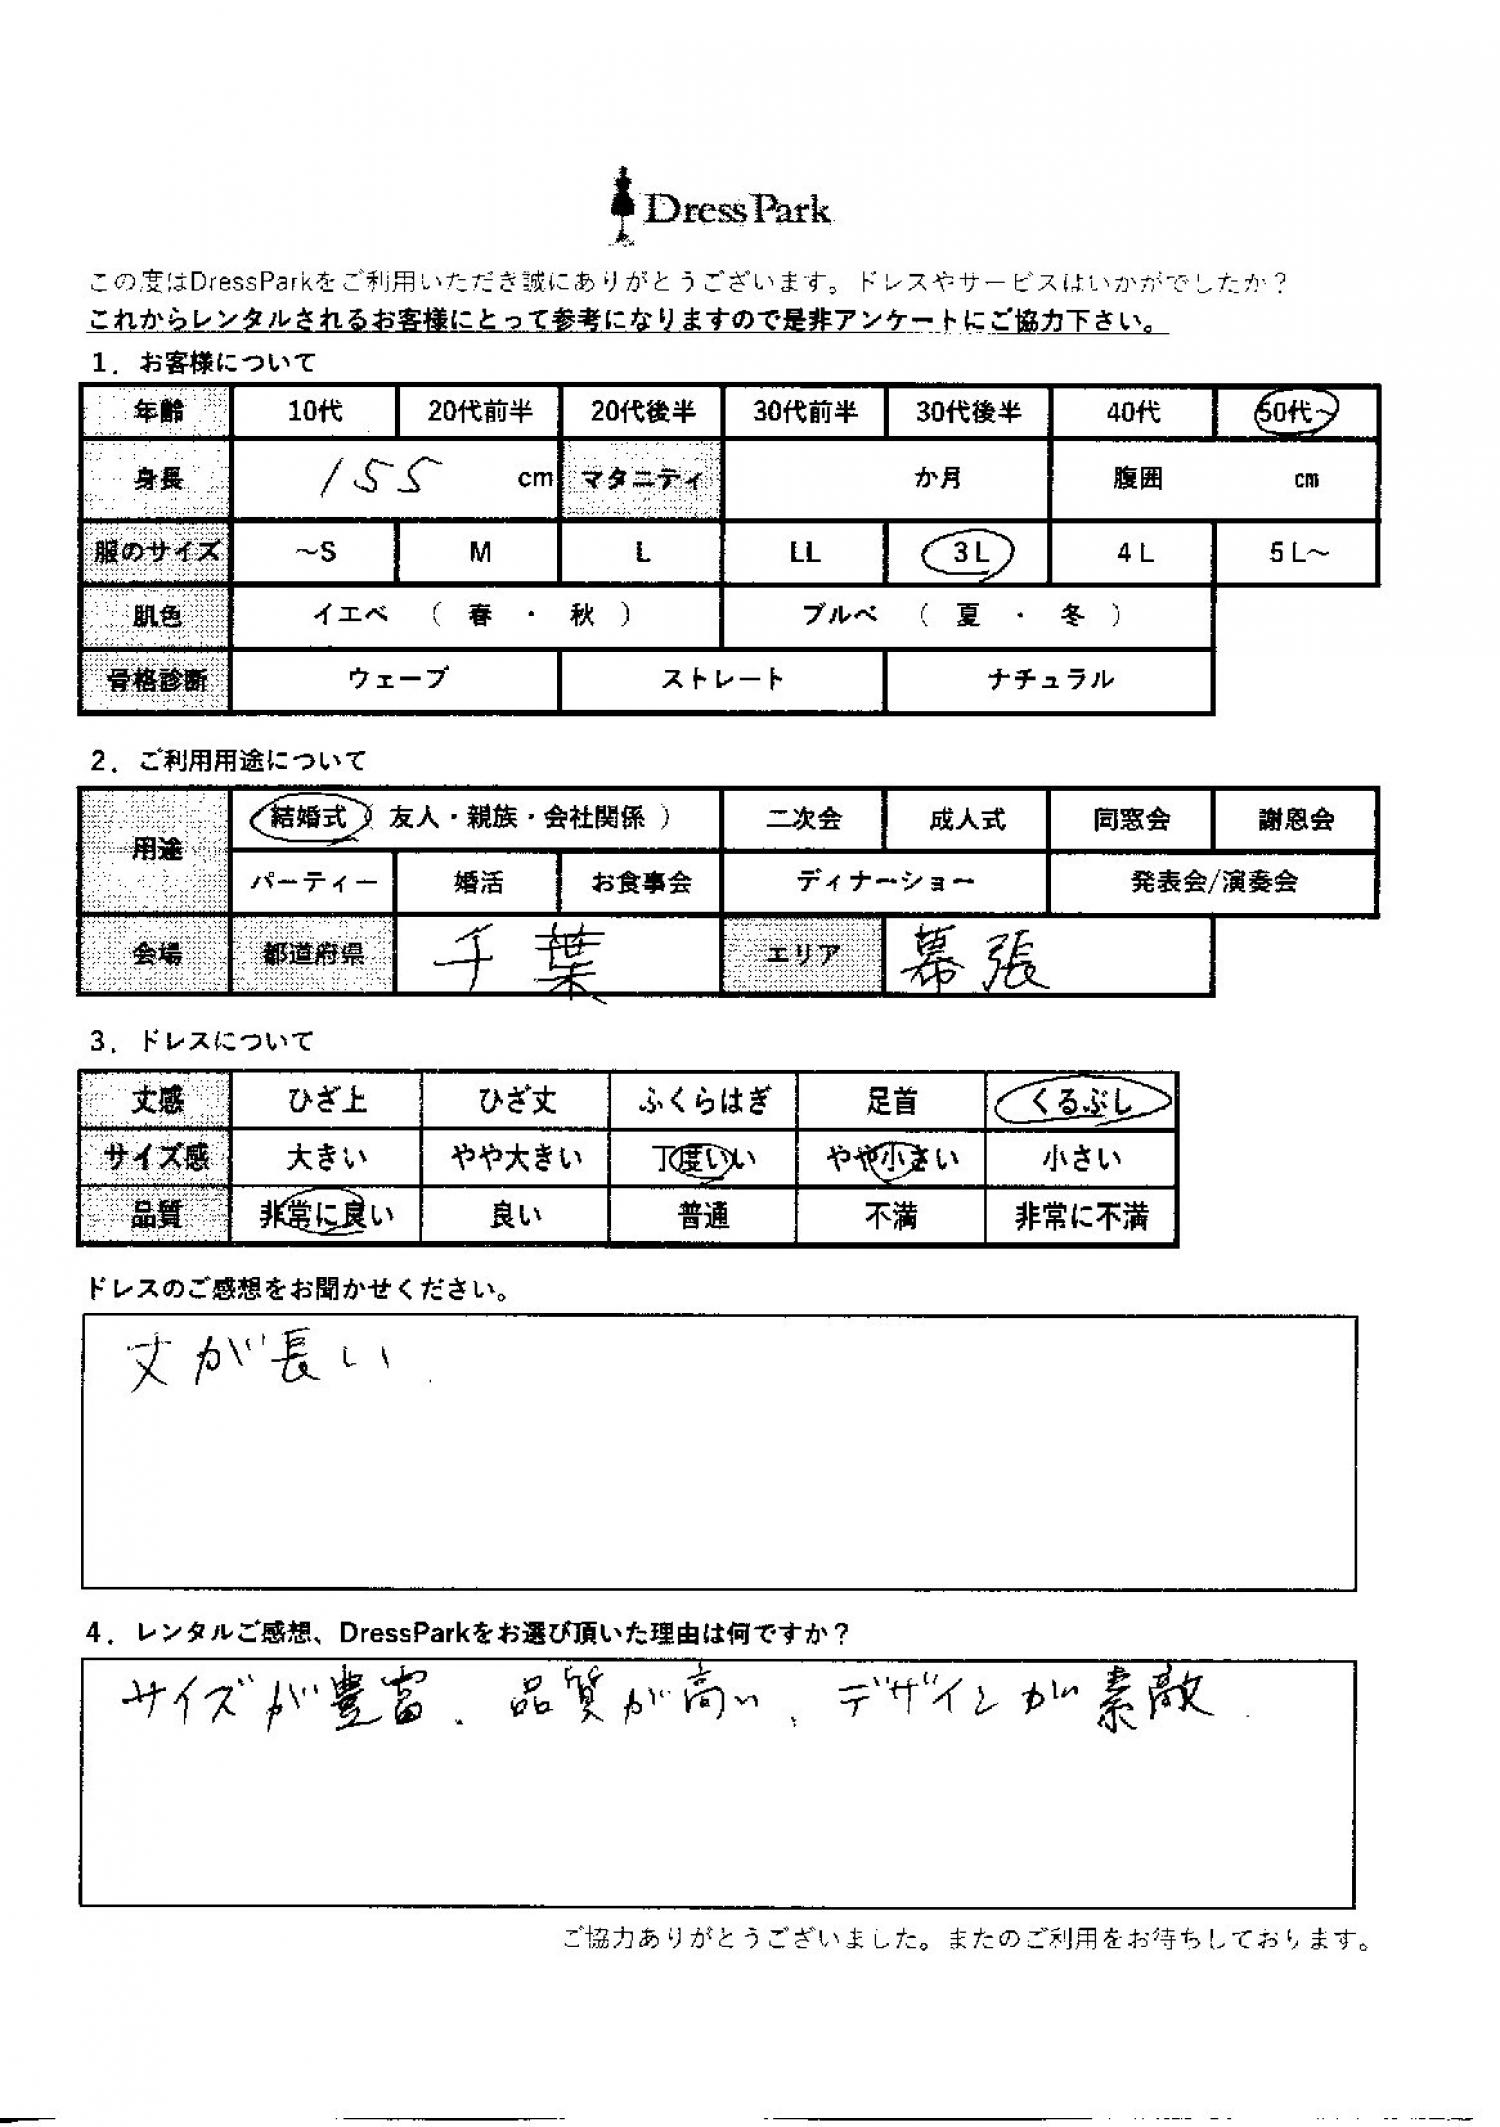 DressPark
この度はDressParkをご利用いただき誠にありがとうございます。ドレスやサービスはいかがでしたか？
これからレンタルされるお客様にとって参考になりますので是非アンケートにご協力下さい。
1．お客様について
年齢 10代 20代前半 20代後半 30代前半 30代後半 40代 50代～
身長 155 cm マタニティ か月 腹囲 cm
服のサイズ ～S M L LL 3L 4L 5L～
肌色 イエベ （ 春 ・ 秋 ） ブルベ （ 夏 ・ 冬 ）
骨格診断 ウェーブ ストレート ナチュラル
2．ご利用用途について
用途 結婚式（ 友人・親族・会社関係 ） 二次会 成人式 同窓会 謝恩会
パーティー 婚活 お食事会 ディナーショー 発表会/演奏会
会場 都道府県 千葉 エリア 幕張
3．ドレスについて
丈感 ひざ上 ひざ丈 ふくらはぎ 足首 くるぶし
サイズ感 大きい やや大きい 丁度いい やや小さい 小さい
品質 非常に良い 良い 普通 不満 非常に不満
ドレスのご感想をお聞かせください。
丈が長い.
4．レンタルご感想、DressParkをお選び頂いた理由は何ですか？
サイズが豊富、品質が高い、デザインが素敵.
ご協力ありがとうございました。またのご利用をお待ちしております。